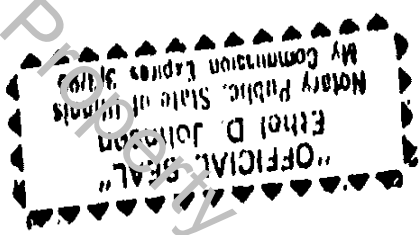 "OFFICIAL SEAL"
Ethel D. Johnson
Notary Public, State of Illinois
My Commission Expires
Property